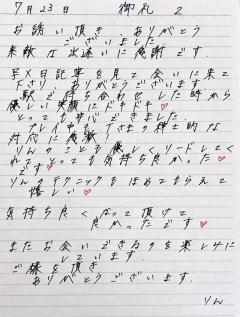 7月23日 御礼 2
お誘い頂き、ありがとう
ございました
素敵な出逢いに感謝です。
早々日記等を見て会いに来て
下さり ありがとうございます
優しく 待ち合わせした時から
優しい笑顔にドキドキ♡
とっても安心できました。
プレイ中も、Tさまの紳士的な
対応に感激
りんのことも優しくリードしてく
れて、とっても気持ち良かった♡
です
りんのテクニックもほめてもらえて
嬉しい♡
気持ち良くなって頂けて
良かったです♡
またお会いできるのを楽しみに
しています
ご縁を頂き
ありがとうございます.
りん